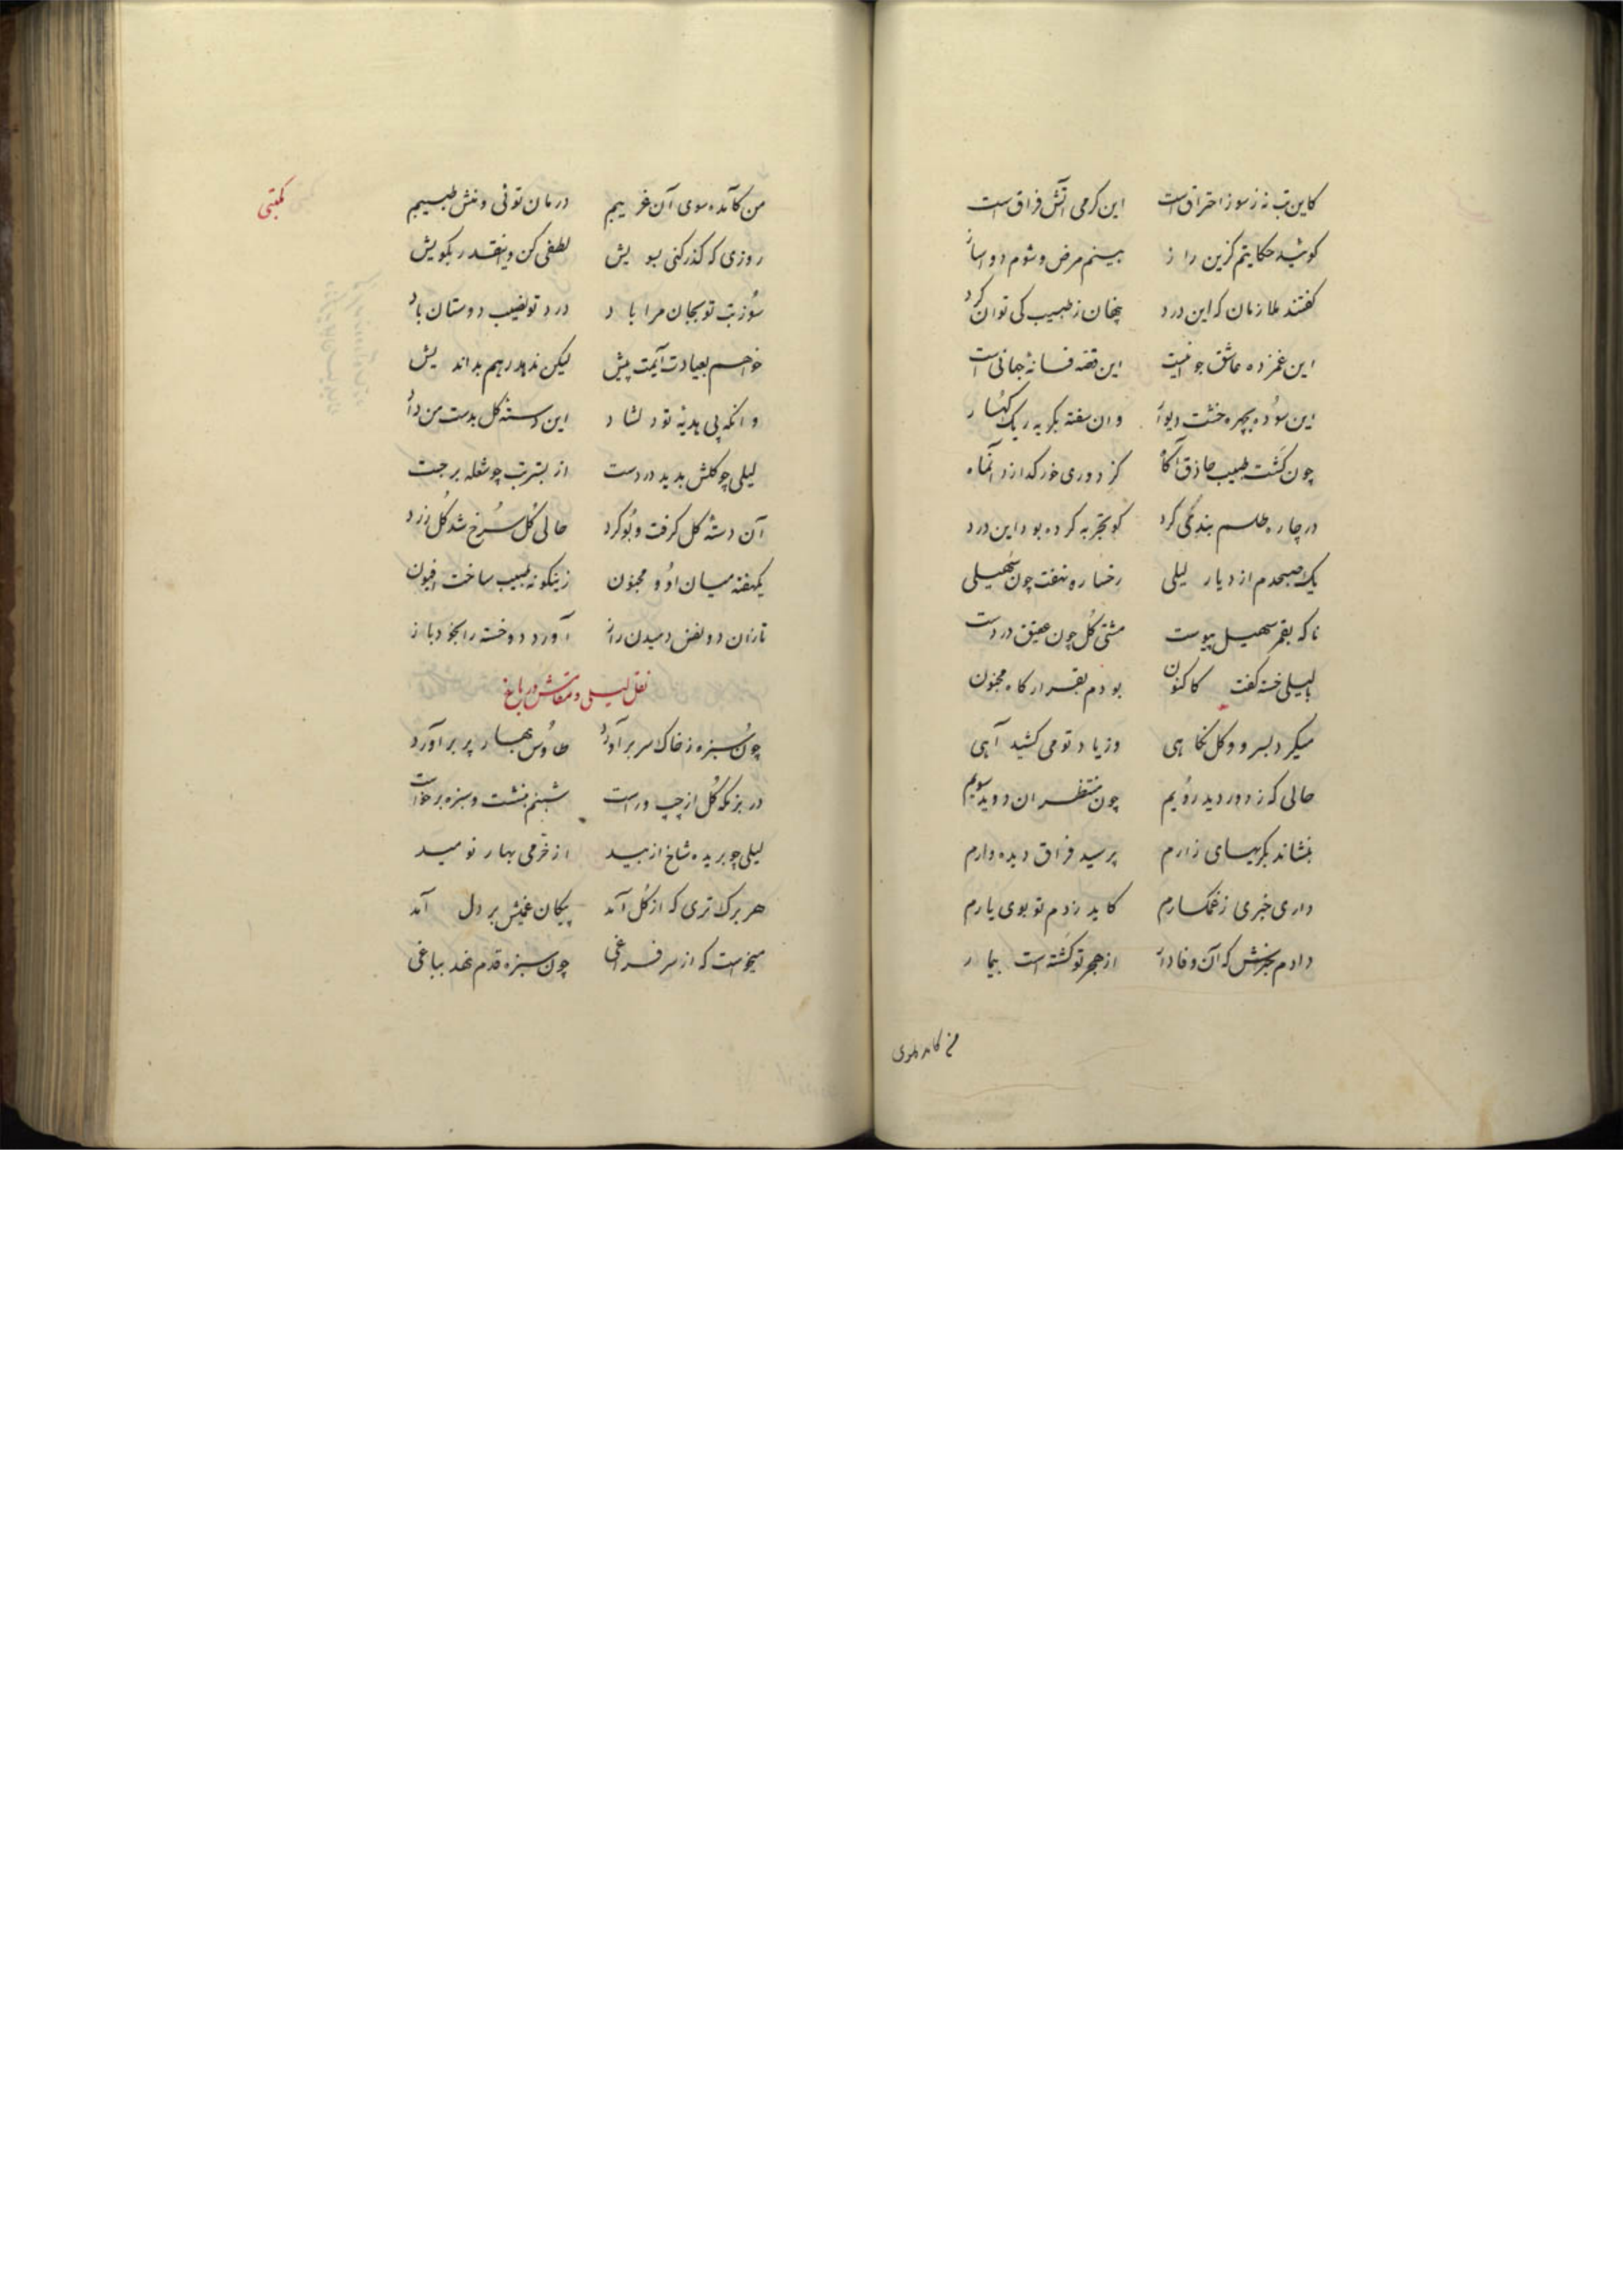 کاین تب نه ز سوز احتراق است این کرمی آتش فراق است
کوئید حکایتم کزین راز بینم مرض و شوم دواساز
کفتند ملازمان که این درد پنهان ز طبیب کی توان کرد
این غمزده عاشق جوانیست این قصه فسانهٔ جهانی است
این سوده بچهره خشت دیوار وان سفته بکریه ریک کهسار
چون کشت طبیب حاذق آکاه کز دوری خور کدازد آنماه
در چاره طلسم بندکی کرد کو تجربه کرده بود این درد
یک صبحدم از دیار لیلی رخساره نهفت چون سهیلی
ناکه بقمر سهیل پیوست مشتی کل چون عقیق در دست
با لیلی خسته کفت کاکنون بودم بقرارکاه مجنون
میکرد بسرو و کل نکاهی وز یاد تو می کشید آهی
حالی که ز دور دید رویم چون منتظران دوید سویم
بنشاند بکریهای زارم پرسید فراق دیده دارم
داری خبری ز غمکسارم کاید ز دم تو بوی یارم
دادم خبرش که آن وفادار از هجر تو کشته است بیمار
من کامده سوی
مکتبی
من کآمده سوی آن غریبم درمان توئی و منش طبیبم
روزی که کذر کنی بسویش لطفی کن و اینقدر بکویش
سوز تب تو بجان مرا باد درد تو نصیب دوستان باد
خواهم بعیادت آیمت پیش لیکن ندهد رهم بداندیش
وانکه پی هدیهٔ تو دلشاد این دستهٔ کل بدست من داد
لیلی چو کلش بدید در دست از بستر تب چو شعله برجست
آن دستهٔ کل کرفت و بو کرد حالی کل سرخ شد کل زرد
یکهفته میان او و مجنون زینکونه طبیب ساخت افیون
تا زان دو نفس دمیدن راز آورد دو خسته را بخود باز
نقل لیلی و در باغ
چون سبزه ز خاک سر برآورد طاوس بهار پر برآورد
در بزمکه کل از چپ و راست شبنم بنشست و سبزه برخواست
لیلی چو بریده شاخ از بید از خرمی بهار نومید
هر برک تری که از کل آمد پیکان غمیش بر دل آمد
میخواست که از سر فراغی چون سبزه قدم نهد بباغی